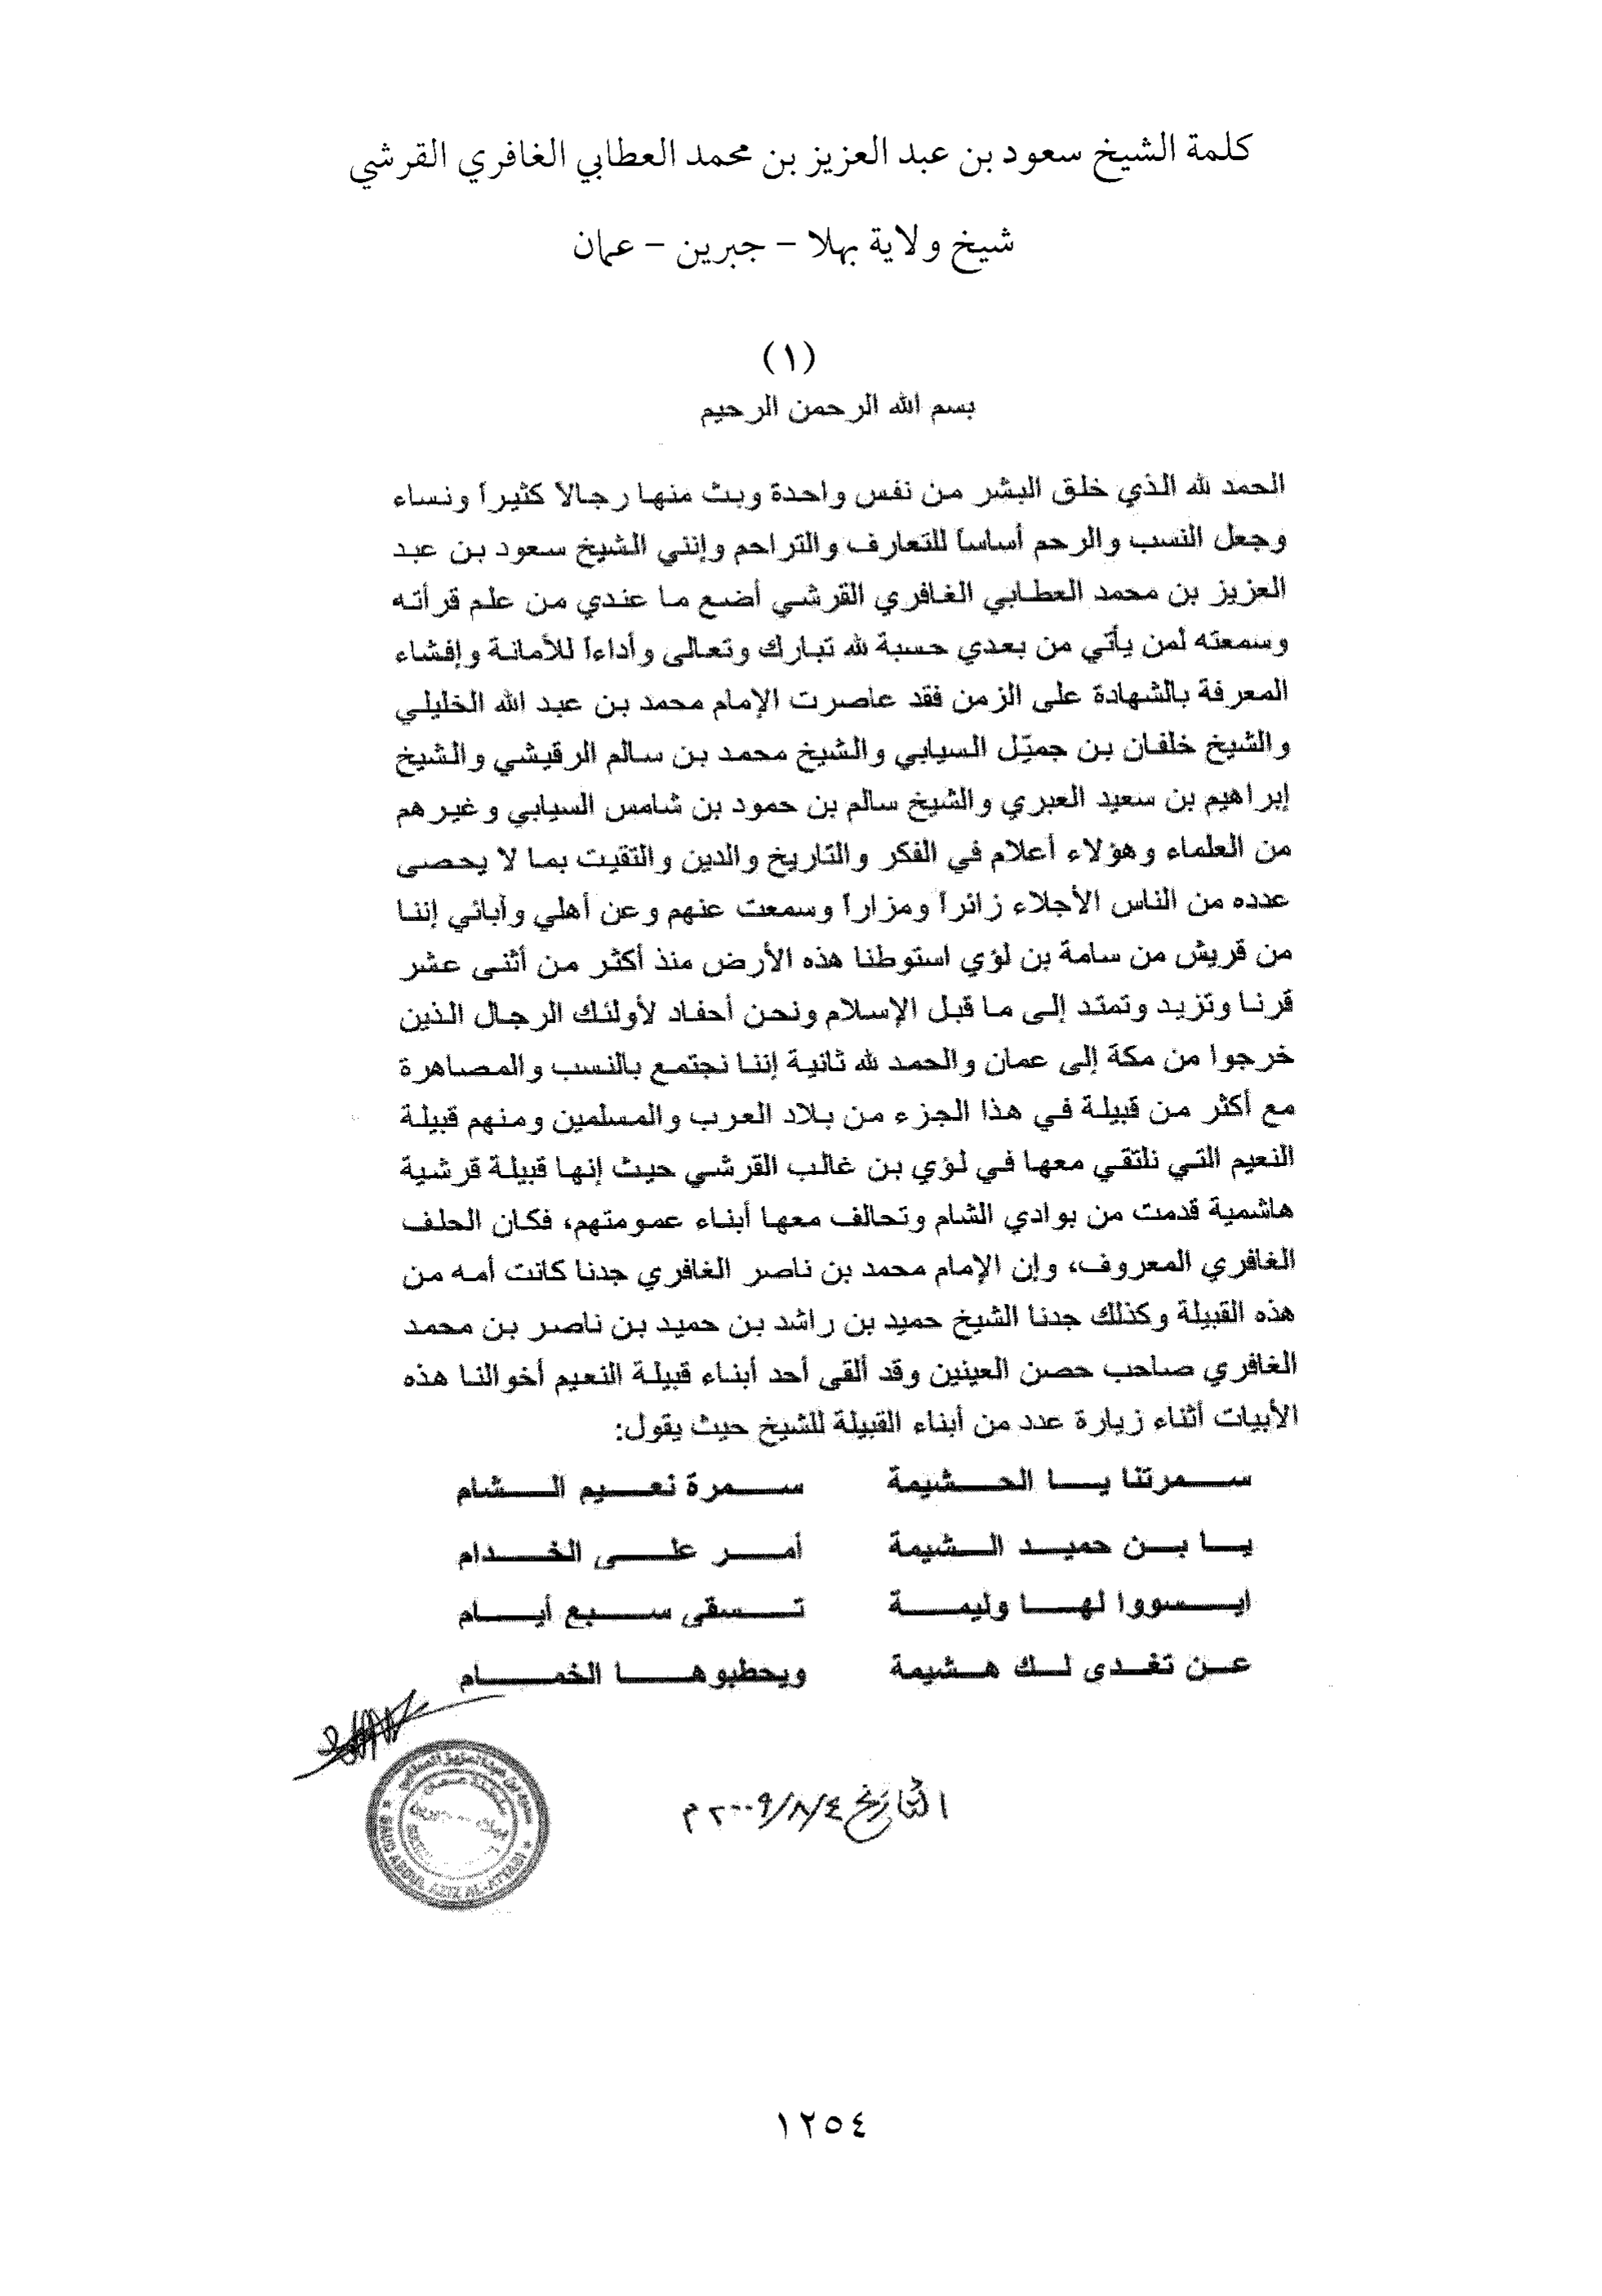 كلمة الشيخ سعود بن عبد العزيز بن محمد العطابي الغافري القرشي
شيخ ولاية بهلا – جبرين – عمان
(١)
بسم الله الرحمن الرحيم
الحمد لله الذي خلق البشر من نفس واحدة وبث منها رجالاً كثيراً ونساء
وجعل النسب والرحم أساساً للتعارف والتراحم وإنني الشيخ سعود بن عبد
العزيز بن محمد العطابي الغافري القرشي أضع ما عندي من علم قرأته
وسمعته لمن يأتي من بعدي حسبة لله تبارك وتعالى وأداءاً للأمانة وإفشاء
المعرفة بالشهادة على الزمن فقد عاصرت الإمام محمد بن عبد الله الخليلي
والشيخ خلفان بن جميّل السيابي والشيخ محمد بن سالم الرقيشي والشيخ
إبراهيم بن سعيد العبري والشيخ سالم بن حمود بن شامس السيابي وغيرهم
من العلماء وهؤلاء أعلام في الفكر والتاريخ والدين والتقيت بما لا يحصى
عدده من الناس الأجلاء زائراً ومزاراً وسمعت عنهم وعن أهلي وآبائي إننا
من قريش من سامة بن لؤي استوطنا هذه الأرض منذ أكثر من أثنى عشر
قرنا وتزيد وتمتد إلى ما قبل الإسلام ونحن أحفاد لأولئك الرجال الذين
خرجوا من مكة إلى عمان والحمد لله ثانية إننا نجتمع بالنسب والمصاهرة
مع أكثر من قبيلة في هذا الجزء من بلاد العرب والمسلمين ومنهم قبيلة
النعيم التي نلتقي معها في لؤي بن غالب القرشي حيث إنها قبيلة قرشية
هاشمية قدمت من بوادي الشام وتحالف معها أبناء عمومتهم، فكان الحلف
الغافري المعروف، وإن الإمام محمد بن ناصر الغافري جدنا كانت أمه من
هذه القبيلة وكذلك جدنا الشيخ حميد بن راشد بن حميد بن ناصر بن محمد
الغافري صاحب حصن العينين وقد ألقى أحد أبناء قبيلة النعيم أخوالنا هذه
الأبيات أثناء زيارة عدد من أبناء القبيلة للشيخ حيث يقول:
سمرتنا يا الحشيمة سمرة نعيم الشام
يا بن حميد الشيمة أمر على الخدام
ايسووا لها وليمة تسقى سبع أيام
عن تغدى لك هشيمة ويحطبوها الخمام
التاريخ ٢٠٠٩/٨/٤ م
سعود بن عبدالعزيز العطابي
SAUD ABDUL AZIZ AL-ATTABI
١٢٥٤